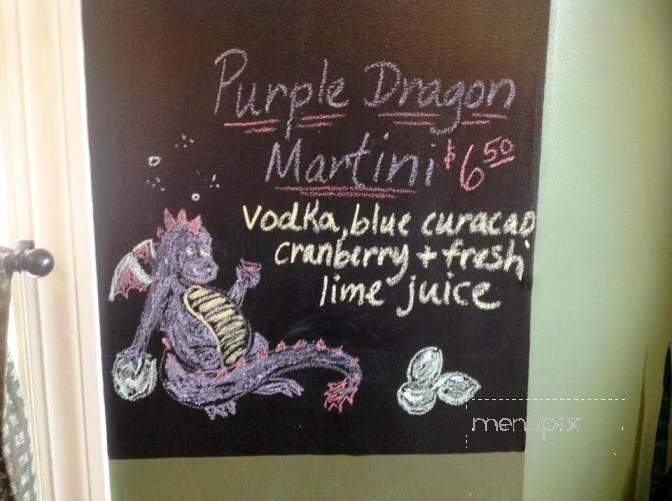 Purple Dragon
Martini $6.50
vodka, blue curacao
cranberry + fresh
lime juice
menupix